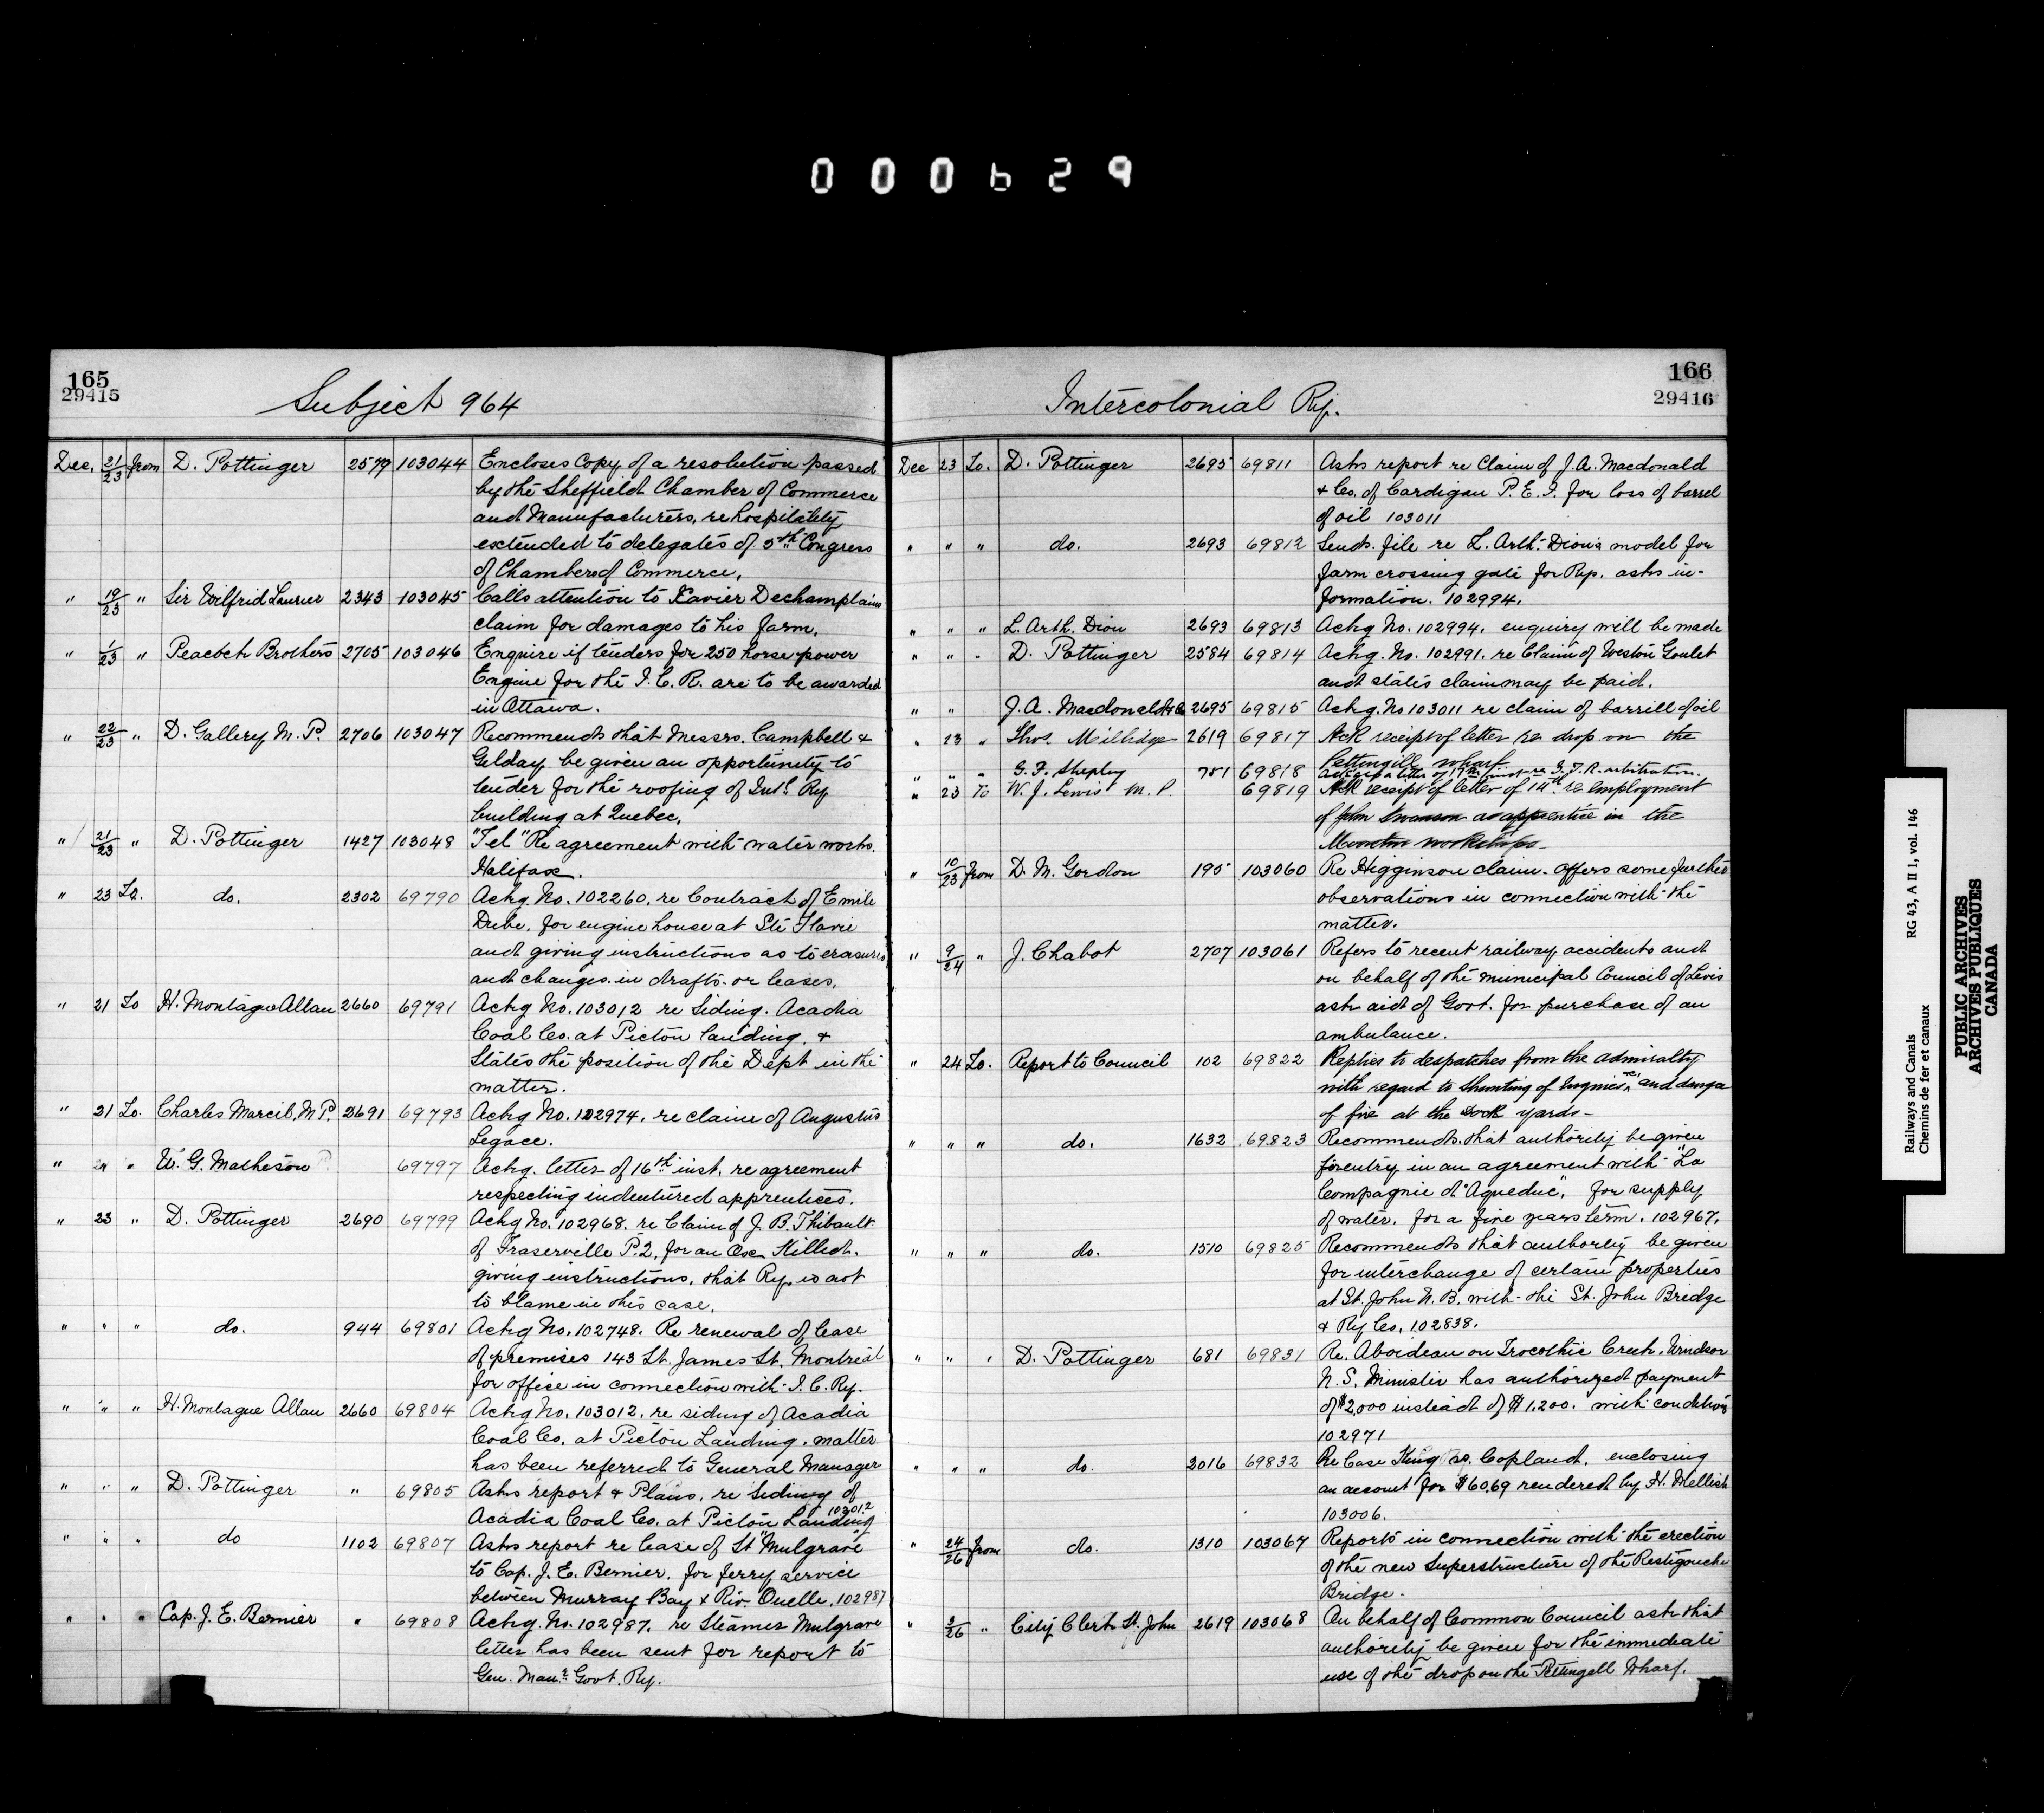 000629
165
29415
Subject 964
Dec. 21/23 from D. Pottinger 2579 103044 Encloses Copy of a resolution passed
by the Sheffield Chamber of Commerce
and Manufacturers, re hospitality
extended to delegates of 5th Congress
of Chambers of Commerce.
" 19/23 " Sir Wilfrid Laurier 2343 103045 Calls attention to Xavier Dechamplains
claim for damages to his farm.
" 1/23 " Peacock Brothers 2705 103046 Enquire if tenders for 250 horse power
Engine for the I. C. R. are to be awarded
in Ottawa.
" 22/23 " D. Gallery M. P. 2706 103047 Recommends that Messrs. Campbell &
Gilday be given an opportunity to
tender for the roofing of Intl. Ry
building at Quebec.
" 21/23 " D. Pottinger 1427 103048 "Tel" Re agreement with water works.
Halifax.
" 23 To. do. 2302 69790 Ackg. No. 102260. re Contract of Emile
Dube. for engine house at Ste Flavie
and giving instructions as to erasures
and changes in drafts or leases.
" 21 To H. Montague Allan 2660 69791 Ackg No. 103012 re Siding. Acadia
Coal Co. at Pictou landing. &
States the position of the Dept in the
matter.
" 21 To. Charles Marcil, M.P. 2691 69793 Ackg No. 102974. re claim of Augustus
Legace.
" 21 " W. G. Matheson 69797 Ackg. letter of 16th inst. re agreement
respecting indentured apprentices.
" 23 " D. Pottinger 2690 69799 Ackg No. 102968. re Claim of J. B. Thibault
of Fraserville P.Q. for an Ox Killed.
giving instructions, that Ry. is not
to blame in this case.
" " " do. 944 69801 Ackg No. 102748. Re renewal of lease
of premises 143 St. James St. Montreal
for office in connection with I. C. Ry.
" " " H. Montague Allan 2660 69804 Ackg No. 103012. re siding of Acadia
Coal Co. at Pictou Landing. matter
has been referred to General Manager
" " " D. Pottinger " 69805 Asks report & Plans, re Siding of
Acadia Coal Co. at Pictou Landing 103012
" " " do 1102 69807 Asks report re lease of St "Mulgrave
to Cap. J. E. Bernier. for ferry service
between Murray Bay & Riv. Ouelle. 102987
" " " Cap. J. E. Bernier " 69808 Ackg. No. 102987. re Steamer Mulgrave
letter has been sent for report to
Gen. Manr. Govt. Ry.
166
29416
Intercolonial Ry.
Dec 23 To. D. Pottinger 2695 69811 Asks report re Claim of J. A. Macdonald
& Co. of Cardigan P. E. I. for loss of barrel
of oil 103011
" " " do. 2693 69812 Sends file re L. Arth. Dion's model for
farm crossing gate for Ry. asks in-
formation. 102994.
" " " L. Arth. Dion 2693 69813 Ackg No. 102994. enquiry will be made
" " " D. Pottinger 2584 69814 Ackg. No. 102991. re Claim of Weston Goulet
and states claim may be paid.
" " J. A. Macdonald & Co 2695 69815 Ackg. No 103011 re claim of barrill of oil
" 23 " Thos. Millidge 2619 69817 Ack receipt of letter re drop on the
Pettingill wharf
" " " G. F. Shepley 781 69818 letter of inst re G. T. R. arbitration
" 23 To W. J. Lewis M. P. 69819 Ack receipt of letter of 14th re employment
of John Swanson as apprentice in the
Moncton workshops-
" 10/23 from D. M. Gordon 195 103060 Re Higginson claim. Offers some further
observations in connection with the
matter.
" 9/24 " J. Chabot 2707 103061 Refers to recent railway accidents and
on behalf of the municipal Council of Levis
ask aid of Govt. for purchase of an
ambulance.
" 24 To. Report to Council 102 69822 Replies to despatches from the admiralty
with regard to Shunting of Engines and danger
of fire at the Dock yards-
" " " do. 1632 69823 Recommends that authority be given
for entry in an agreement with "La
Compagnie d'Aqueduc", for supply
of water. for a five years term. 102967.
" " " do. 1510 69825 Recommends that authority be given
for interchange of certain properties
at St. John N. B. with the St. John Bridge
& Ry Co. 102838.
" " " D. Pottinger 681 69831 Re. Aboideau on Trocothic Creek. Windsor
N. S. Minister has authorized payment
of $2,000 instead of $1,200. with conditions
102971
" " " do. 2016 69832 Re Case King vs. Copland. enclosing
an account for $60.69 rendered by H. Mellish
103006.
" 24/26 from do. 1310 103067 Reports in connection with the erection
of the new Superstructure of the Restigouche
Bridge.
" 2/26 " City Clerk St. John 2619 103068 On behalf of Common Council ask that
authority be given for the immediate
use of the drop on the Pettingell Wharf.
Railways and Canals RG 43, A II 1, vol. 146
Chemins de fer et canaux
PUBLIC ARCHIVES
ARCHIVES PUBLIQUES
CANADA